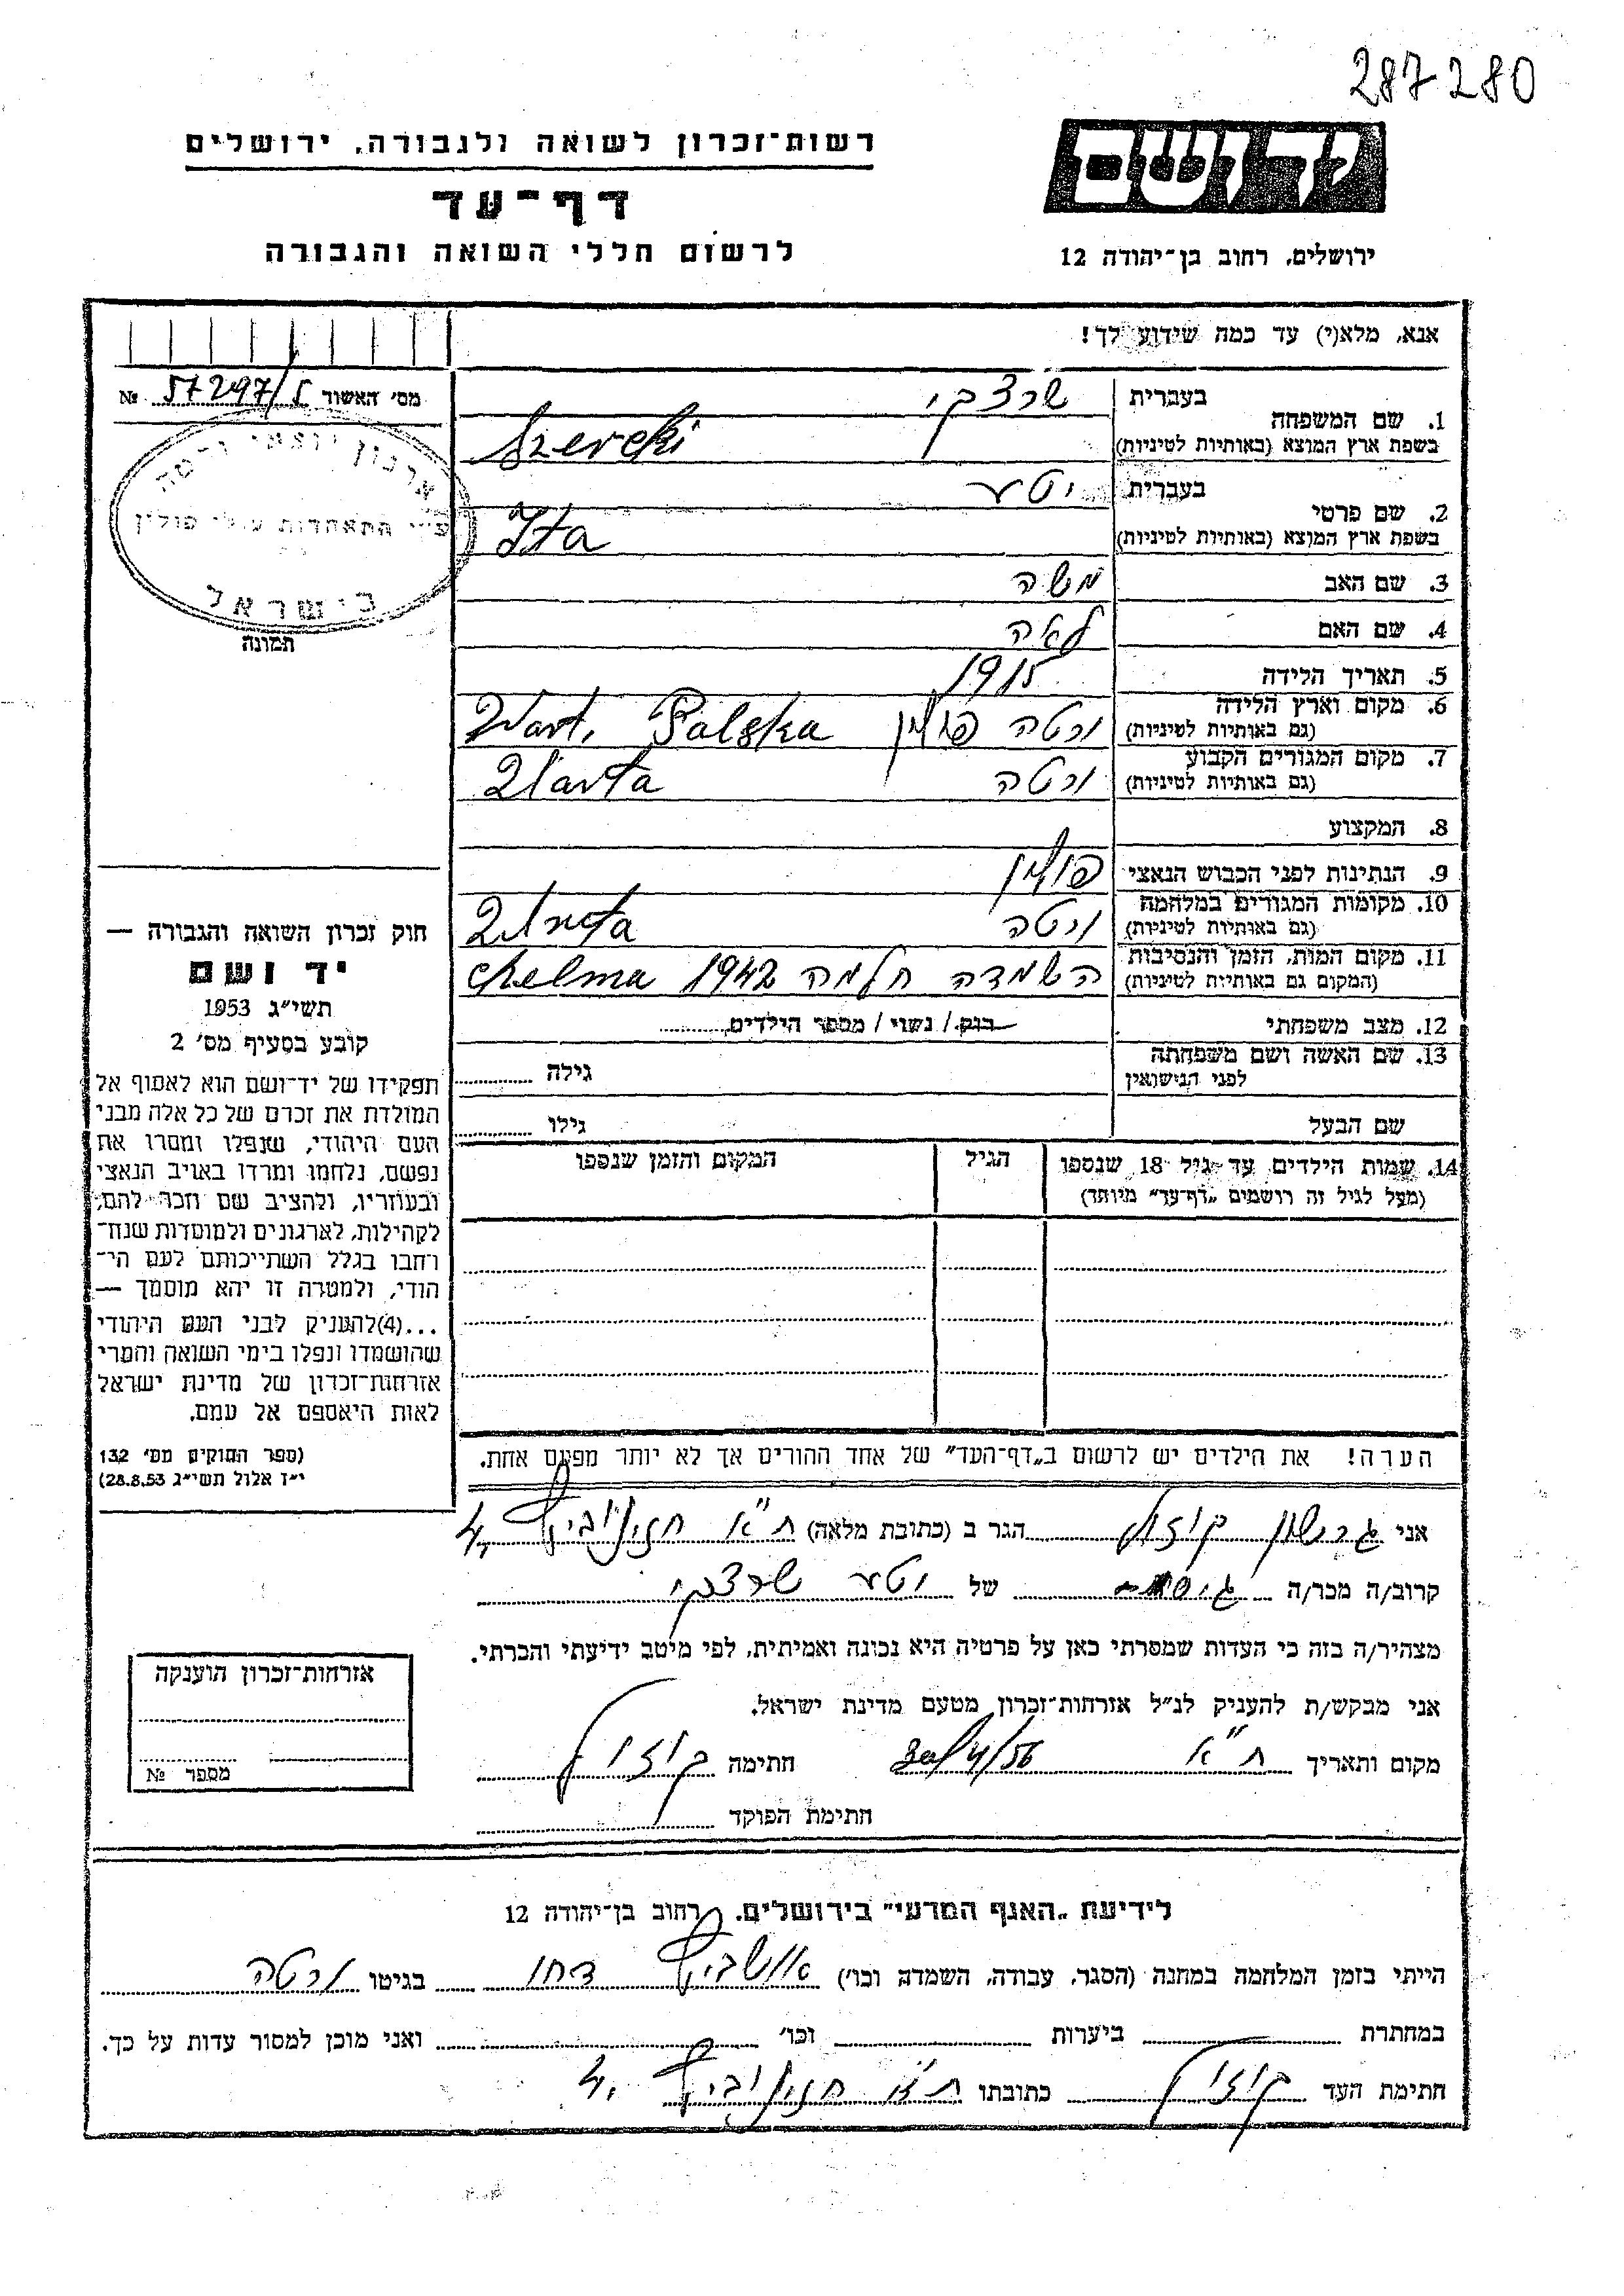 287280
רשות־זכרון לשואה ולגבורה, ירושלים
דף־עד
לרשום חללי השואה והגבורה
ידושם
ירושלים, רחוב בן־יהודה 12
אנא, מלא(י) עד כמה שידוע לך!
מס׳ האשור 57297/5 №
ארגון יוצאי ורטה
ע״י התאחדות עולי פולין
בישראל
תמונה
1. שם המשפחה
בעברית שרצקי
בשפת ארץ המוצא (באותיות לטיניות) Szercki
2. שם פרטי
בעברית יטע
בשפת ארץ המוצא (באותיות לטיניות) Ita
3. שם האב משה
4. שם האם לאה
5. תאריך הלידה 1915
6. מקום וארץ הלידה
(גם באותיות לטיניות) ורטה פולין Wart. Polska
7. מקום המגורים הקבוע
(גם באותיות לטיניות) ורטה Warta
8. המקצוע
9. הנתינות לפני הכבוש הנאצי פולין
10. מקומות המגורים במלחמה
(גם באותיות לטיניות) ורטה Warta
11. מקום המות, הזמן והנסיבות
(המקום גם באותיות לטיניות) השמדה חלמה 1942 Chelma
12. מצב משפחתי רווק / נשוי / מספר הילדים
13. שם האשה ושם משפחתה
לפני הנישואין גילה
שם הבעל גילו
14. שמות הילדים עד גיל 18 שנספו הגיל המקום והזמן שנספו
(מעל לגיל זה רושמים „דף־עד״ מיוחד)
הערה! את הילדים יש לרשום ב„דף־העד״ של אחד ההורים אך לא יותר מפעם אחת.
חוק זכרון השואה והגבורה —
יד ושם
תשי״ג 1953
קובע בסעיף מס׳ 2
תפקידו של יד־ושם הוא לאסוף אל
המולדת את זכרם של כל אלה מבני
העם היהודי, שנפלו ומסרו את
נפשם, נלחמו ומרדו באויב הנאצי
ובעוזריו, ולהציב שם וזכר להם,
לקהילות, לארגונים ולמוסדות שנח־
רחבו בגלל השתייכותם לעם הי־
הודי, ולמטרה זו יהא מוסמך —
...(4)להעניק לבני העם היהודי
שהושמדו ונפלו בימי השואה והמרי
אזרחות־זכרון של מדינת ישראל
לאות היאספם אל עמם.
(ספר החוקים מס׳ 132
י״ז אלול תשי״ג 28.8.53)
אני גרשון הגר ב (כתובת מלאה) ת״א 4
קרוב/ה מכר/ה של יטע שרצקי
מצהיר/ה בזה כי העדות שמסרתי כאן על פרטיה היא נכונה ואמיתית, לפי מיטב ידיעתי והכרתי.
אני מבקש/ת להעניק לנ״ל אזרחות־זכרון מטעם מדינת ישראל.
מקום ותאריך ת״א 30/4/56 חתימה
חתימת הפוקד
אזרחות־זכרון הוענקה
מספר №
לידיעת „האגף המדעי״ בירושלים. רחוב בן־יהודה 12
הייתי בזמן המלחמה במחנה (הסגר, עבודה, השמדה וכו׳) אושביץ דחו בגיטו ורטה
במחתרת ביערות וכו׳ ואני מוכן למסור עדות על כך.
חתימת העד כתובתו ת״א 4